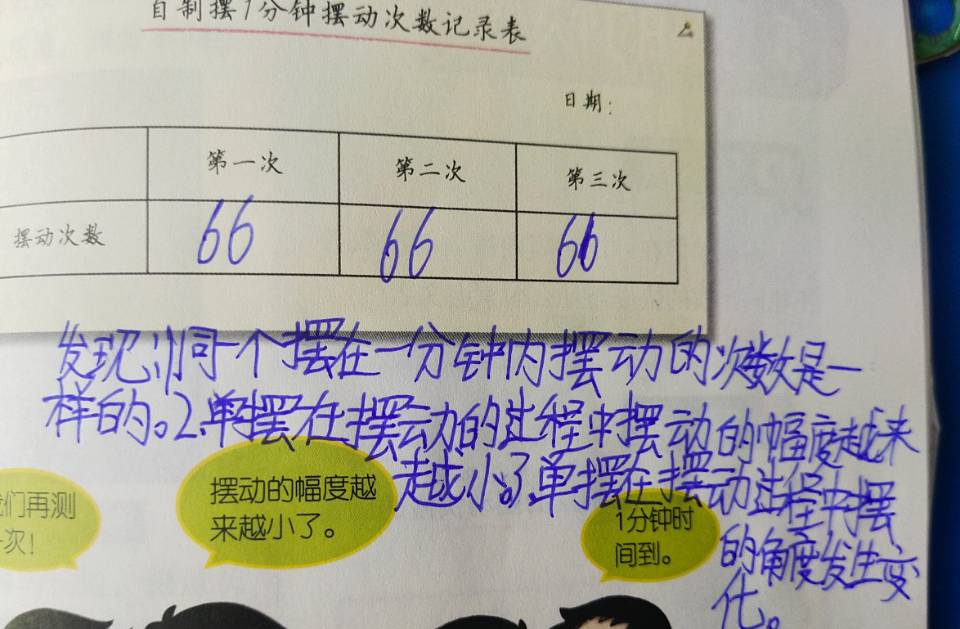 自制摆1分钟摆动次数记录表
日期:
第一次 第二次 第三次
摆动次数 66 66 66
发现:1、同一个摆在一分钟内摆动的次数是一
样的。2、单摆在摆动的过程中摆动的幅度越来
越小。3、单摆在摆动过程中摆
的角度发生变
化。
们再测
次!
摆动的幅度越
来越小了。
1分钟时
间到。